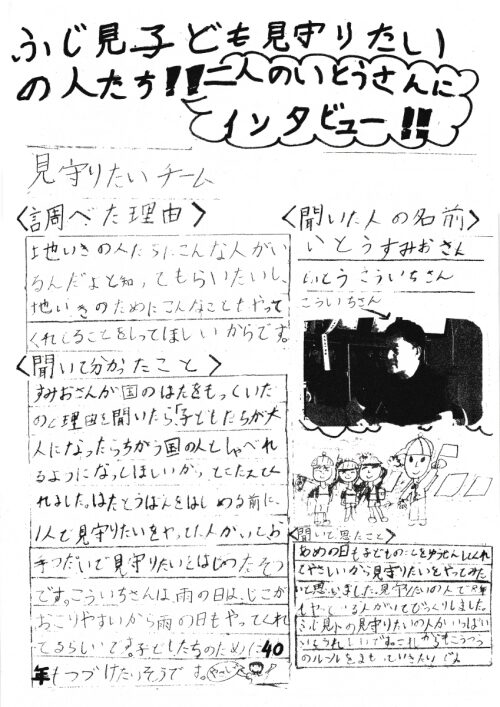 ふじ見子ども見守りたい
の人たち!!二人のいとうさんに
インタビュー!!
見守りたいチーム
<調べた理由>
地いきの人たちにこんな人がい
るんだよと知ってもらいたいし、
地いきのためにこんなこともやって
くれてることをしってほしいからです。
<聞いて分かったこと>
すみおさんが国のはたをもっていた
ので理由を聞いたら「子どもたちが大
人になったらちがう国の人としゃべれ
るようになってほしいから」とこたえてく
れました。はたとうばんをはじめる前に、
1人で見守りたいをやってた人がいてお
きつだいで見守りたいをはじめたそう
です。こういちさんは雨の日は、じこが
おこりやすいから雨の日もやってくれ
てるらしいです。子どもたちのために40
年もつづけたいそうです。
<聞いた人の名前>
いとうすみおさん
いとうこういちさん
こういちさん
<聞いて思ったこと>
あめの日も子どものことをゆうせんしてくれ
てやさしいから見守りたいをやってみた
いと思いました。見守りたいの人で
いる人がいてびっくりしました。
ふじ見小の見守りたいの人がいっぱい
いてうれしいです。これからもこうつう
のルールをまもっていきたいです